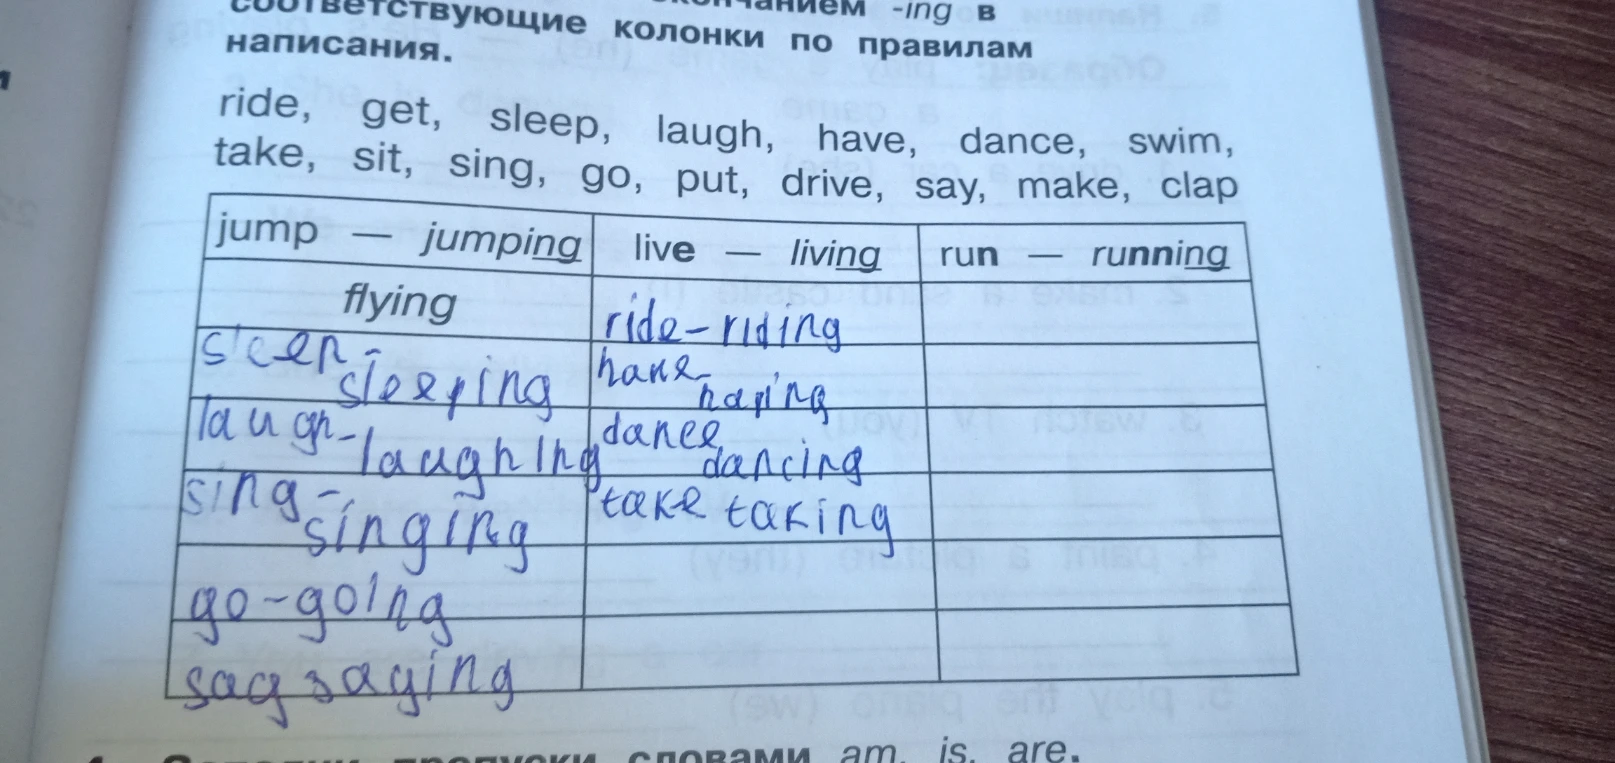 соответствующие колонки по правилам
-ing в
написания.
ride, get, sleep, laugh, have, dance, swim,
take, sit, sing, go, put, drive, say, make, clap
jump — jumping live — living run — running
flying ride-riding
sleep-
sleeping
have
having
laugh-
laughing
dance
dancing
sing-
singing
take taking
go-going
say saying
словами am, is, are.